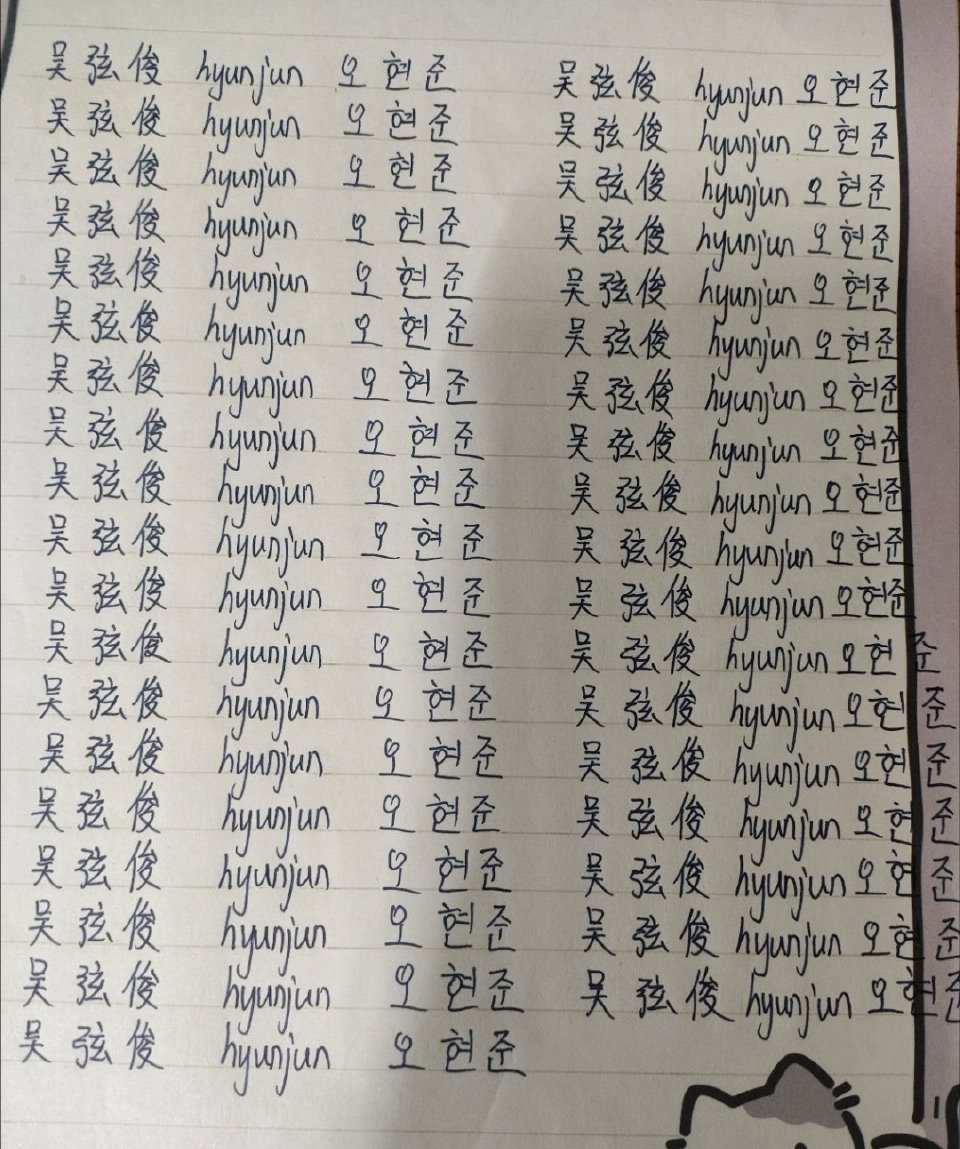 吴弦俊 hyunjun 오현준
吴弦俊 hyunjun 오현준
吴弦俊 hyunjun 오현준
吴弦俊 hyunjun 오현준
吴弦俊 hyunjun 오현준
吴弦俊 hyunjun 오현준
吴弦俊 hyunjun 오현준
吴弦俊 hyunjun 오현준
吴弦俊 hyunjun 오현준
吴弦俊 hyunjun 오현준
吴弦俊 hyunjun 오현준
吴弦俊 hyunjun 오현준
吴弦俊 hyunjun 오현준
吴弦俊 hyunjun 오현준
吴弦俊 hyunjun 오현준
吴弦俊 hyunjun 오현준
吴弦俊 hyunjun 오현준
吴弦俊 hyunjun 오현준
吴弦俊 hyunjun 오현준
吴弦俊 hyunjun 오현준
吴弦俊 hyunjun 오현준
吴弦俊 hyunjun 오현준
吴弦俊 hyunjun 오현준
吴弦俊 hyunjun 오현준
吴弦俊 hyunjun 오현준
吴弦俊 hyunjun 오현준
吴弦俊 hyunjun 오현준
吴弦俊 hyunjun 오현준
吴弦俊 hyunjun 오현준
吴弦俊 hyunjun 오현준
吴弦俊 hyunjun 오현준
吴弦俊 hyunjun 오현준
吴弦俊 hyunjun 오현준
吴弦俊 hyunjun 오현준
吴弦俊 hyunjun 오현준
吴弦俊 hyunjun 오현준
吴弦俊 hyunjun 오현준